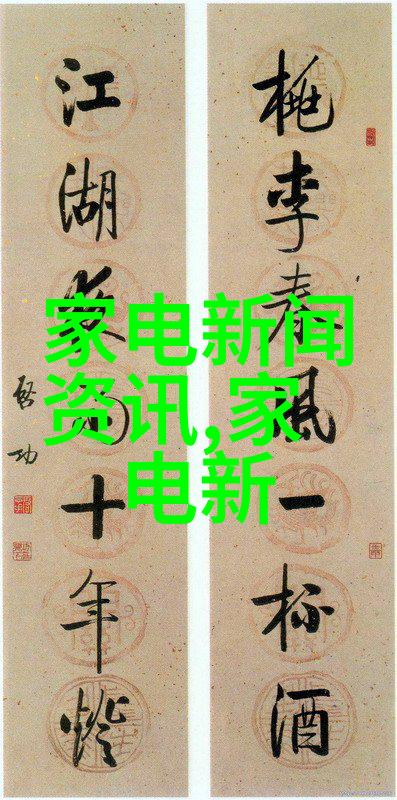 桃李春風一杯酒
江湖夜雨十年燈
启功
家电新闻
资讯,家
电新